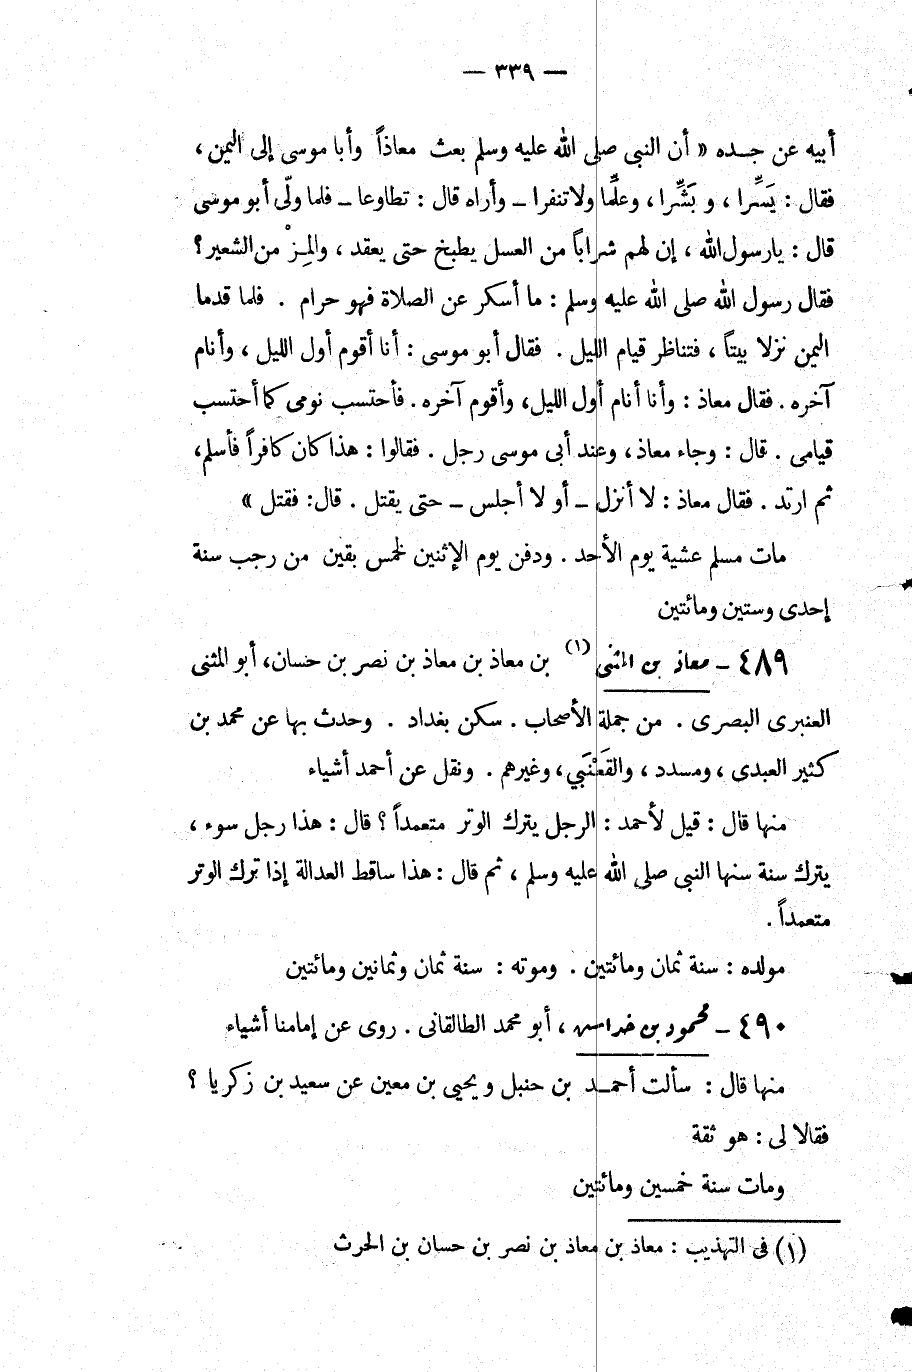 — ٣٣٩ —
أبيه عن جـده « أن النبى صلى الله عليه وسلم بعث معاذاً وأبا موسى إلى اليمن ،
فقال : يَسِّرا ، و بَشِّرا ، وعلِّما ولاتنفرا ــ وأراه قال : تطاوعا ــ فلما ولّى أبو موسى
قال : يارسول الله ، إن لهم شراباً من العسل يطبخ حتى يعقد ، والمِزْ من الشعير ؟
فقال رسول الله صلى الله عليه وسلم : ما أسكر عن الصلاة فهو حرام . فلما قدما
اليمن نزلا بيتاً ، فتناظر قيام الليل . فقال أبو موسى : أنا أقوم أول الليل ، وأنام
آخره . فقال معاذ : وأنا أنام أول الليل، وأقوم آخره . فأحتسب نومى كما أحتسب
قيامى . قال : وجاء معاذ ، وعند أبى موسى رجل . فقالوا : هذا كان كافراً فأسلم،
ثم ارتد . فقال معاذ : لا أنزل ــ أو لا أجلس ــ حتى يقتل . قال: فقتل »
مات مسلم عشية يوم الأحد . ودفن يوم الإثنين لخمس بقين من رجب سنة
إحدى وستين ومائتين
٤٨٩ ــ معاذ بن المثنى (١) بن معاذ بن معاذ بن نصر بن حسان، أبو المثنى
العنبرى البصرى . من جملة الأصحاب . سكن بغداد . وحدث بها عن محمد بن
كثير العبدى ، ومسدد ، والقَعْنَبي، وغيرهم . ونقل عن أحمد أشياء
منها قال : قيل لأحمد : الرجل يترك الوتر متعمداً ؟ قال : هذا رجل سوء ،
يترك سنة سنها النبى صلى الله عليه وسلم ، ثم قال : هذا ساقط العدالة إذا ترك الوتر
متعمداً .
مولده : سنة ثمان ومائتين . وموته : سنة ثمان وثمانين ومائتين
٤٩٠ ــ محمود بن خداش ، أبو محمد الطالقانى . روى عن إمامنا أشياء
منها قال : سألت أحمـد بن حنبل ويحيى بن معين عن سعيد بن زكريا ؟
فقالا لى : هو ثقة
ومات سنة خمسين ومائتين
(١) فى التهذيب : معاذ بن معاذ بن نصر بن حسان بن الحرث